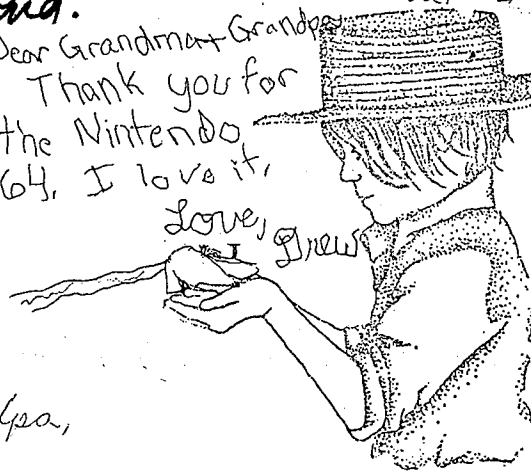 Dear Grandma + Grandpa
Thank you for
the Nintendo
64. I love it,
Love, Drew